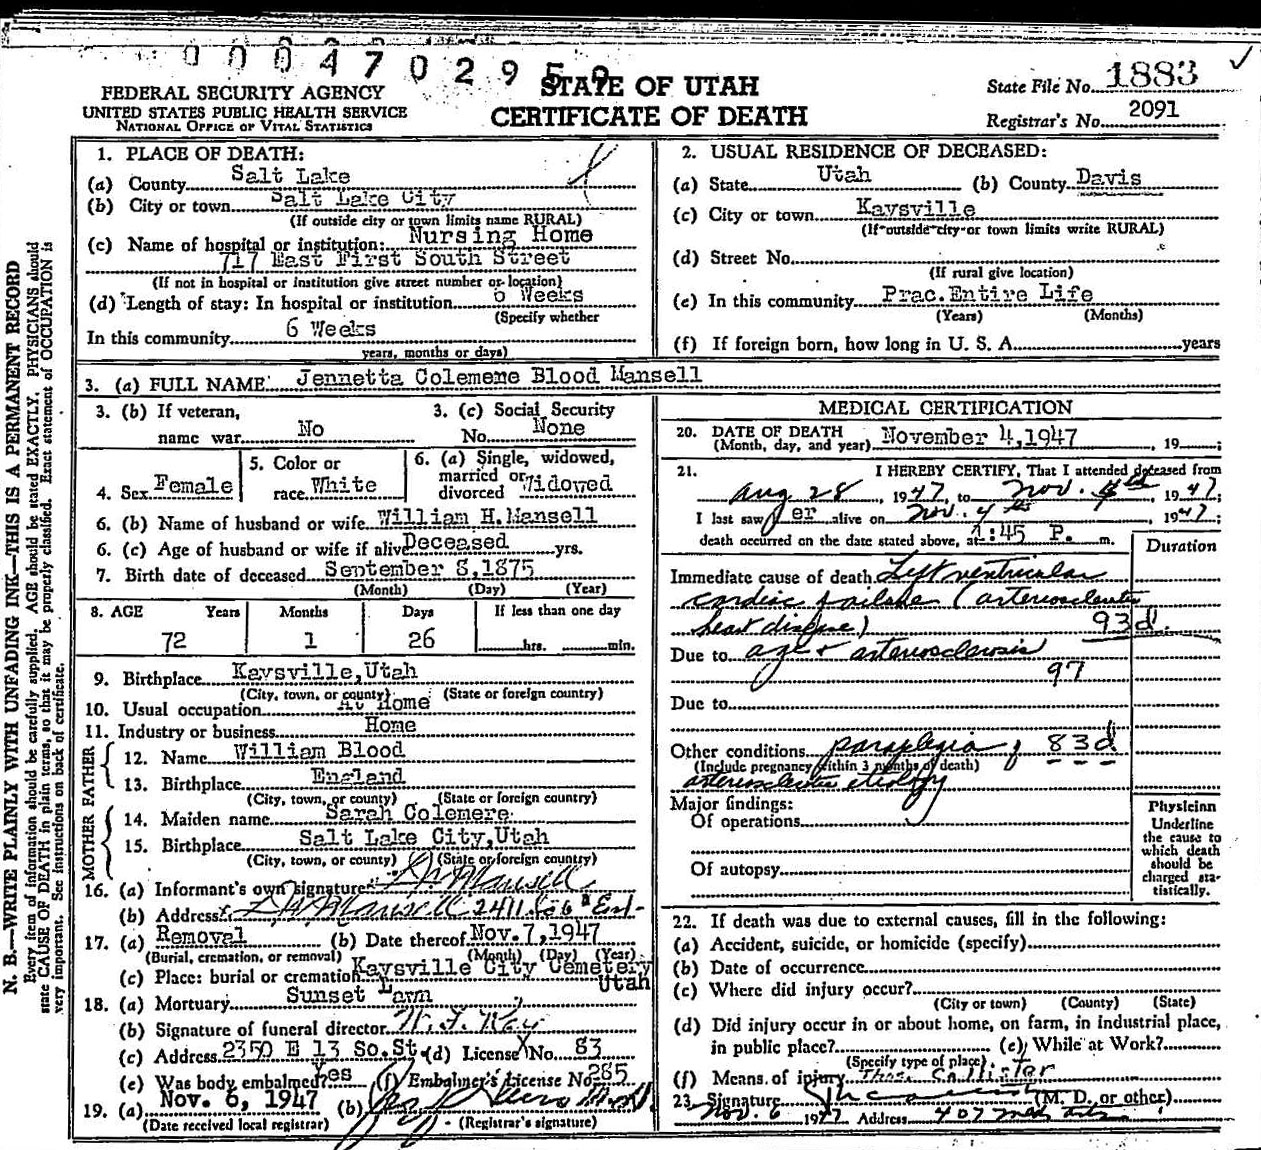 0004702950
FEDERAL SECURITY AGENCY
UNITED STATES PUBLIC HEALTH SERVICE
NATIONAL OFFICE OF VITAL STATISTICS
STATE OF UTAH
CERTIFICATE OF DEATH
State File No. 1883
Registrar's No. 2091
N. B.—WRITE PLAINLY WITH UNFADING INK—THIS IS A PERMANENT RECORD
Every item of information should be carefully supplied. AGE should be stated EXACTLY. PHYSICIANS should
state CAUSE OF DEATH in plain terms, so that it may be properly classified. Exact statement of OCCUPATION is
very important. See instructions on back of certificate.
1. PLACE OF DEATH:
(a) County Salt Lake
(b) City or town Salt Lake City
(If outside city or town limits name RURAL)
(c) Name of hospital or institution: Nursing Home
717 East First South Street
(If not in hospital or institution give street number or location)
(d) Length of stay: In hospital or institution 6 Weeks
(Specify whether
In this community 6 Weeks
years, months or days)
2. USUAL RESIDENCE OF DECEASED:
(a) State Utah (b) County Davis
(c) City or town Kaysville
(If outside city or town limits write RURAL)
(d) Street No.
(If rural give location)
(e) In this community Prac.Entire Life
(Years) (Months)
(f) If foreign born, how long in U. S. A. years
3. (a) FULL NAME Jennetta Colemene Blood Mansell
3. (b) If veteran, name war No
3. (c) Social Security No. None
4. Sex Female
5. Color or race White
6. (a) Single, widowed, married or divorced Widowed
6. (b) Name of husband or wife William H.Mansell
6. (c) Age of husband or wife if alive Deceased yrs.
7. Birth date of deceased September 8,1875
(Month) (Day) (Year)
8. AGE Years Months Days If less than one day
72 1 26 hrs. min.
9. Birthplace Kaysville,Utah
(City, town, or county) (State or foreign country)
10. Usual occupation At Home
11. Industry or business Home
FATHER
12. Name William Blood
13. Birthplace England
(City, town, or county) (State or foreign country)
MOTHER
14. Maiden name Sarah Colemere
15. Birthplace Salt Lake City,Utah
(City, town, or county) (State or foreign country)
16. (a) Informant's own signature Mansell
(b) Address Mansell 2411 So 6th East
17. (a) Removal (b) Date thereof Nov.7,1947
(Burial, cremation, or removal) (Month) (Day) (Year)
(c) Place: burial or cremation Kaysville City Cemetery
Utah
18. (a) Mortuary Sunset Lawn
(b) Signature of funeral director
(c) Address 2350 E 13 So.St. (d) License No. 83
(e) Was body embalmed? Yes (f) Embalmer's License No. 285
19. (a) Nov. 6, 1947 (b)
(Date received local registrar) (Registrar's signature)
MEDICAL CERTIFICATION
20. DATE OF DEATH
(Month, day, and year) November 4,1947, 19 ;
21. I HEREBY CERTIFY, That I attended deceased from
Aug 28, 1947, to Nov. 4th, 1947;
I last saw her alive on Nov. 4th, 1947;
death occurred on the date stated above, at 1:45 P. m.
Duration
Immediate cause of death Left ventricular
cardiac failure (arteriosclerotic
heart disease) 93d
Due to age & arteriosclerosis
97
Due to
Other conditions paraplegia of 83d
(Include pregnancy within 3 months of death)
arteriosclerotic etiology
Major findings:
Of operations
Of autopsy
Physician
Underline
the cause to
which death
should be
charged sta-
tistically.
22. If death was due to external causes, fill in the following:
(a) Accident, suicide, or homicide (specify)
(b) Date of occurrence
(c) Where did injury occur?
(City or town) (County) (State)
(d) Did injury occur in or about home, on farm, in industrial place,
in public place? (e) While at Work?
(Specify type of place)
(f) Means of injury
23. Signature (M. D. or other)
Nov. 6 1947 Address 407 Med Arts